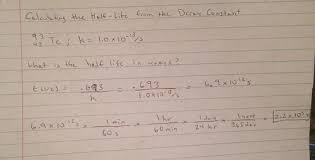 Calculating the Half-Life from the Decay Constant
93 43 Tc ; k = 1.0 x 10⁻¹³/s
What is the half life in years?
t(1/2) = .693 / k = .693 / 1.0x10⁻¹³/s = 6.9 x 10¹² s
6.9 x 10¹² s x 1 min / 60 s x 1 hr / 60 min x 1 day / 24 hr x 1 year / 365 day =